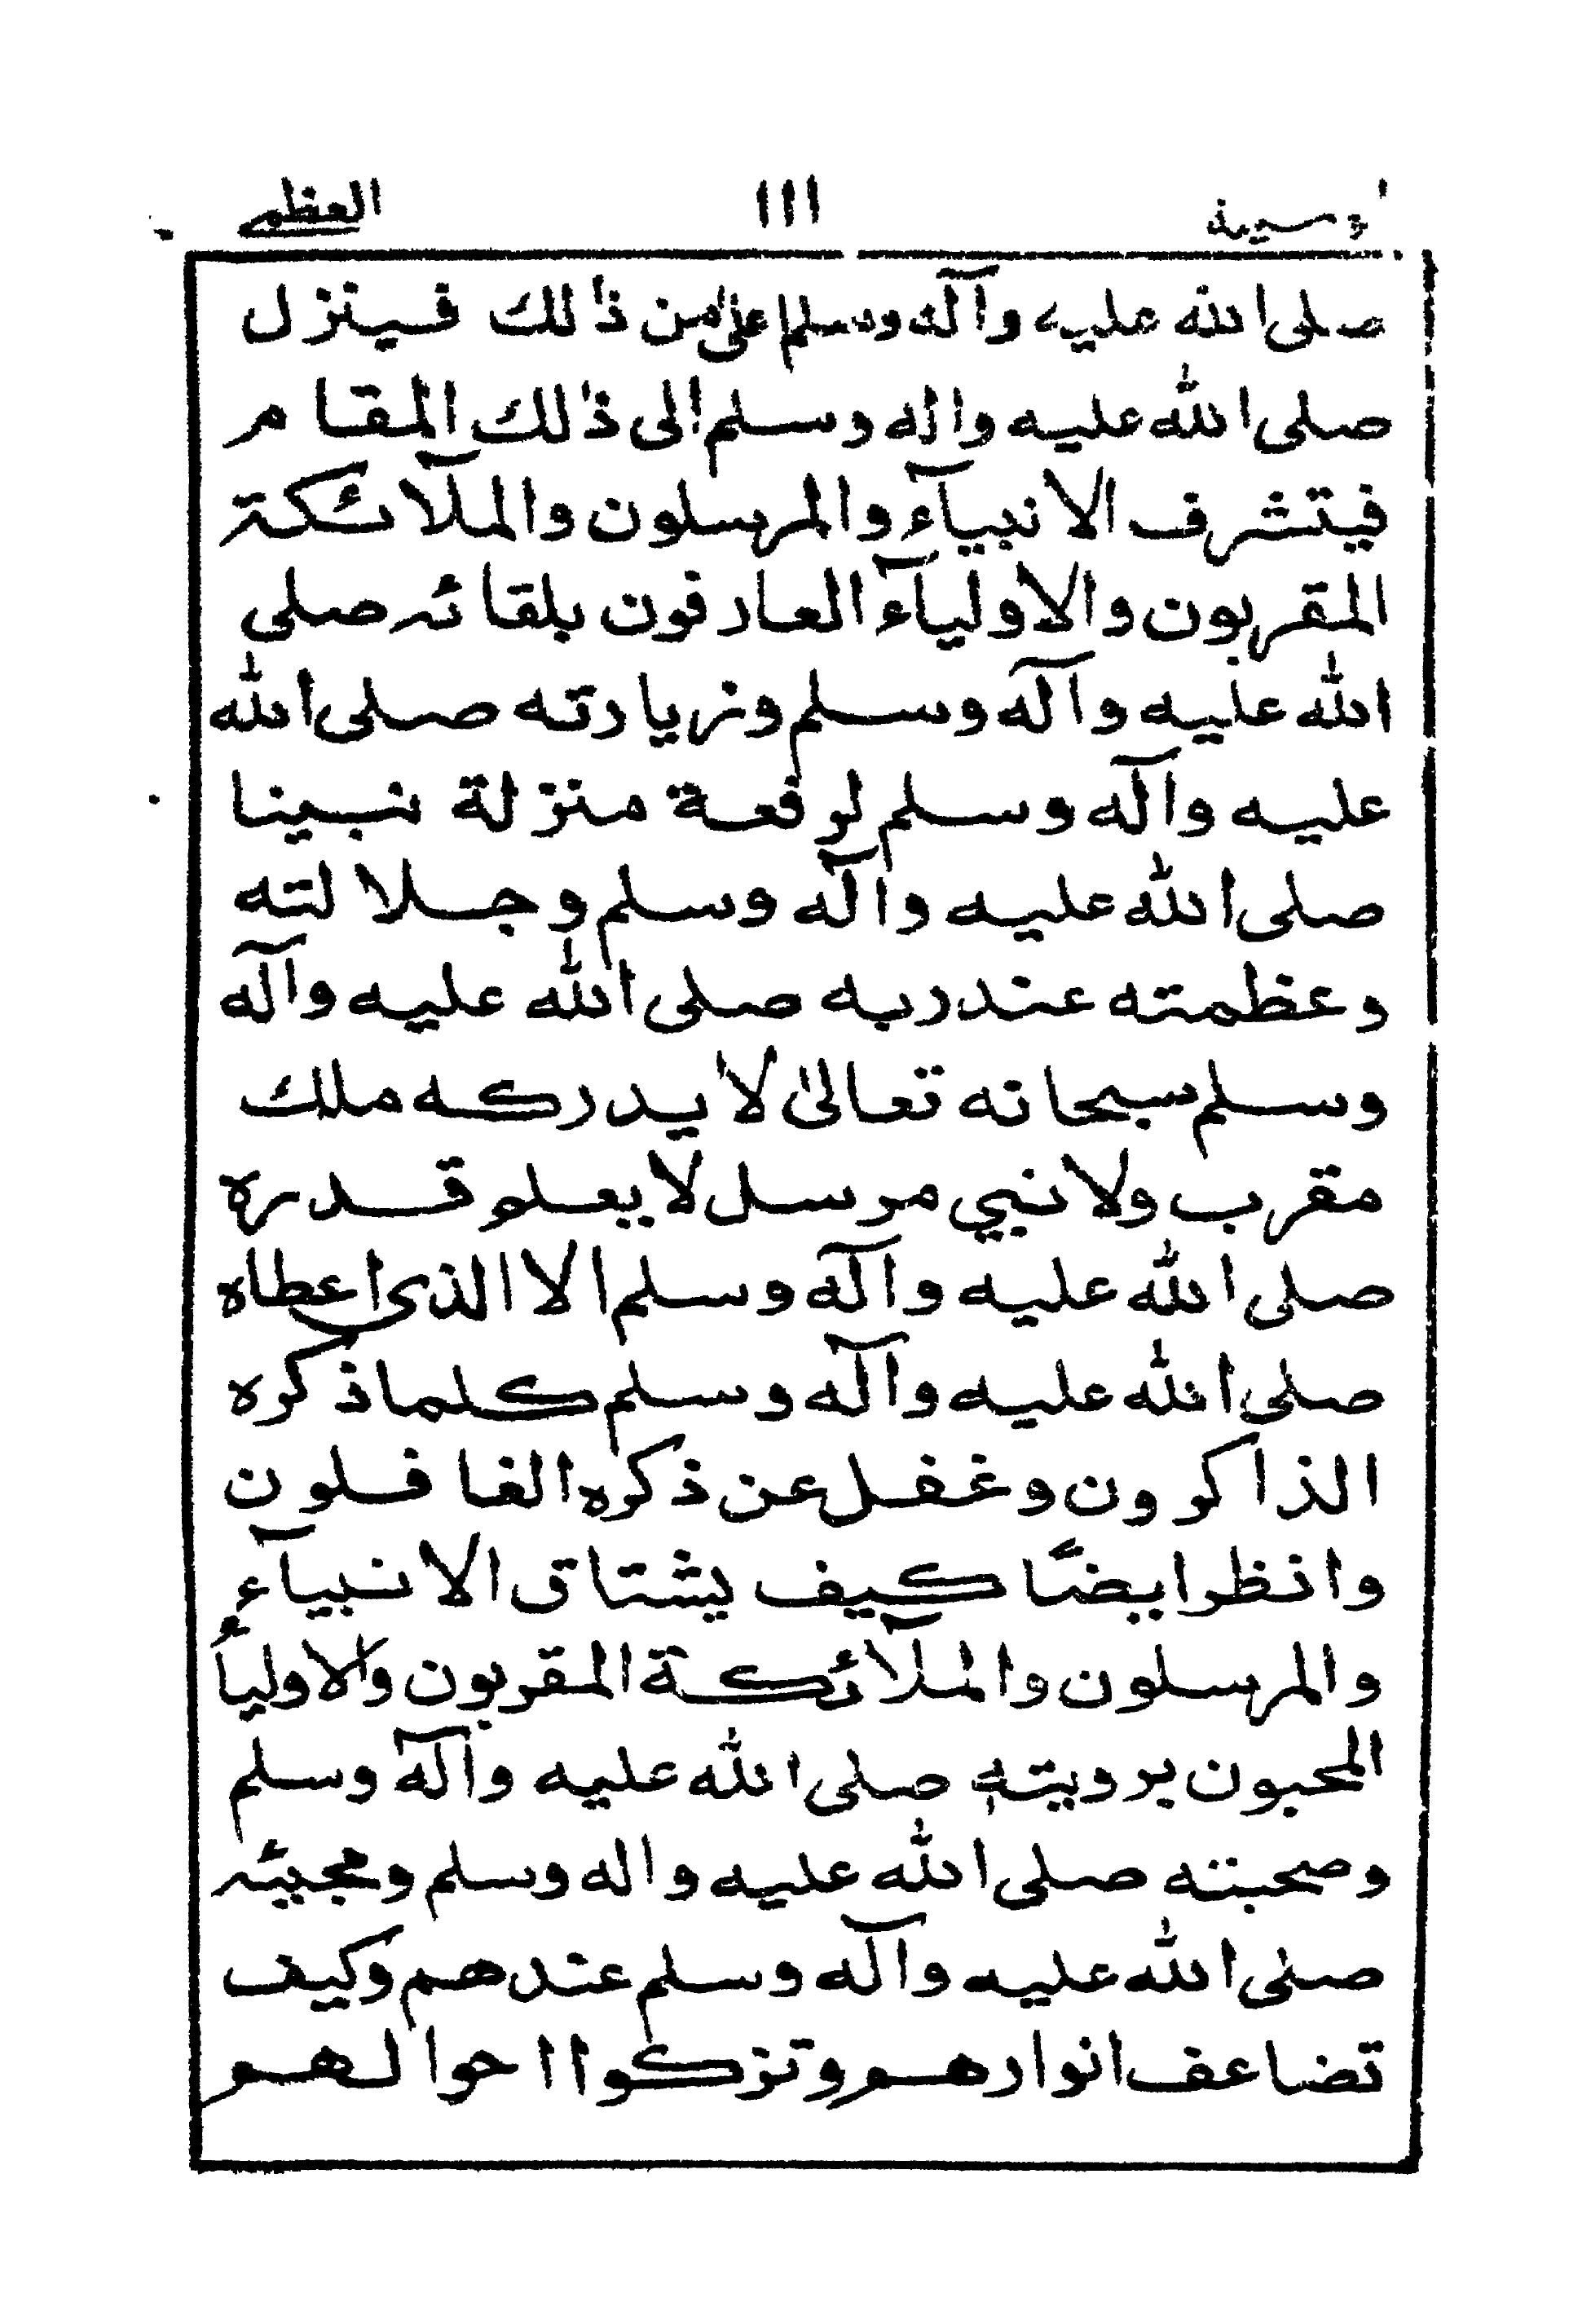 وسيلة ١١١ العظمى
صلى الله عليه وآله وسلم اعلى من ذلك فينزل
صلى الله عليه واله وسلم الى ذلك المقام
فيتشرف الانبيآء والمرسلون والملآئكة
المقربون والاوليآء العارفون بلقائه صلى
الله عليه وآله وسلم وزيارته صلى الله
عليه وآله وسلم لرفعة منزلة نبينا
صلى الله عليه وآله وسلم وجلالته
وعظمته عند ربه صلى الله عليه وآله
وسلم سبحانه تعالىٰ لا يدركه ملك
مقرب ولا نبي مرسل لا يعلم قدره
صلى الله عليه وآله وسلم الا الذى اعطاه
صلى الله عليه وآله وسلم كلما ذكره
الذاكرون وغفل عن ذكره الغافلون
وانظر ايضًا كيف يشتاق الانبيآء
والمرسلون والملآئكة المقربون والاوليأ
المحبون برويته صلى الله عليه وآله وسلم
وصحبته صلى الله عليه واله وسلم ومجيئه
صلى الله عليه وآله وسلم عندهم وكيف
تضاعف انوارهم وتزكوا احوالهم